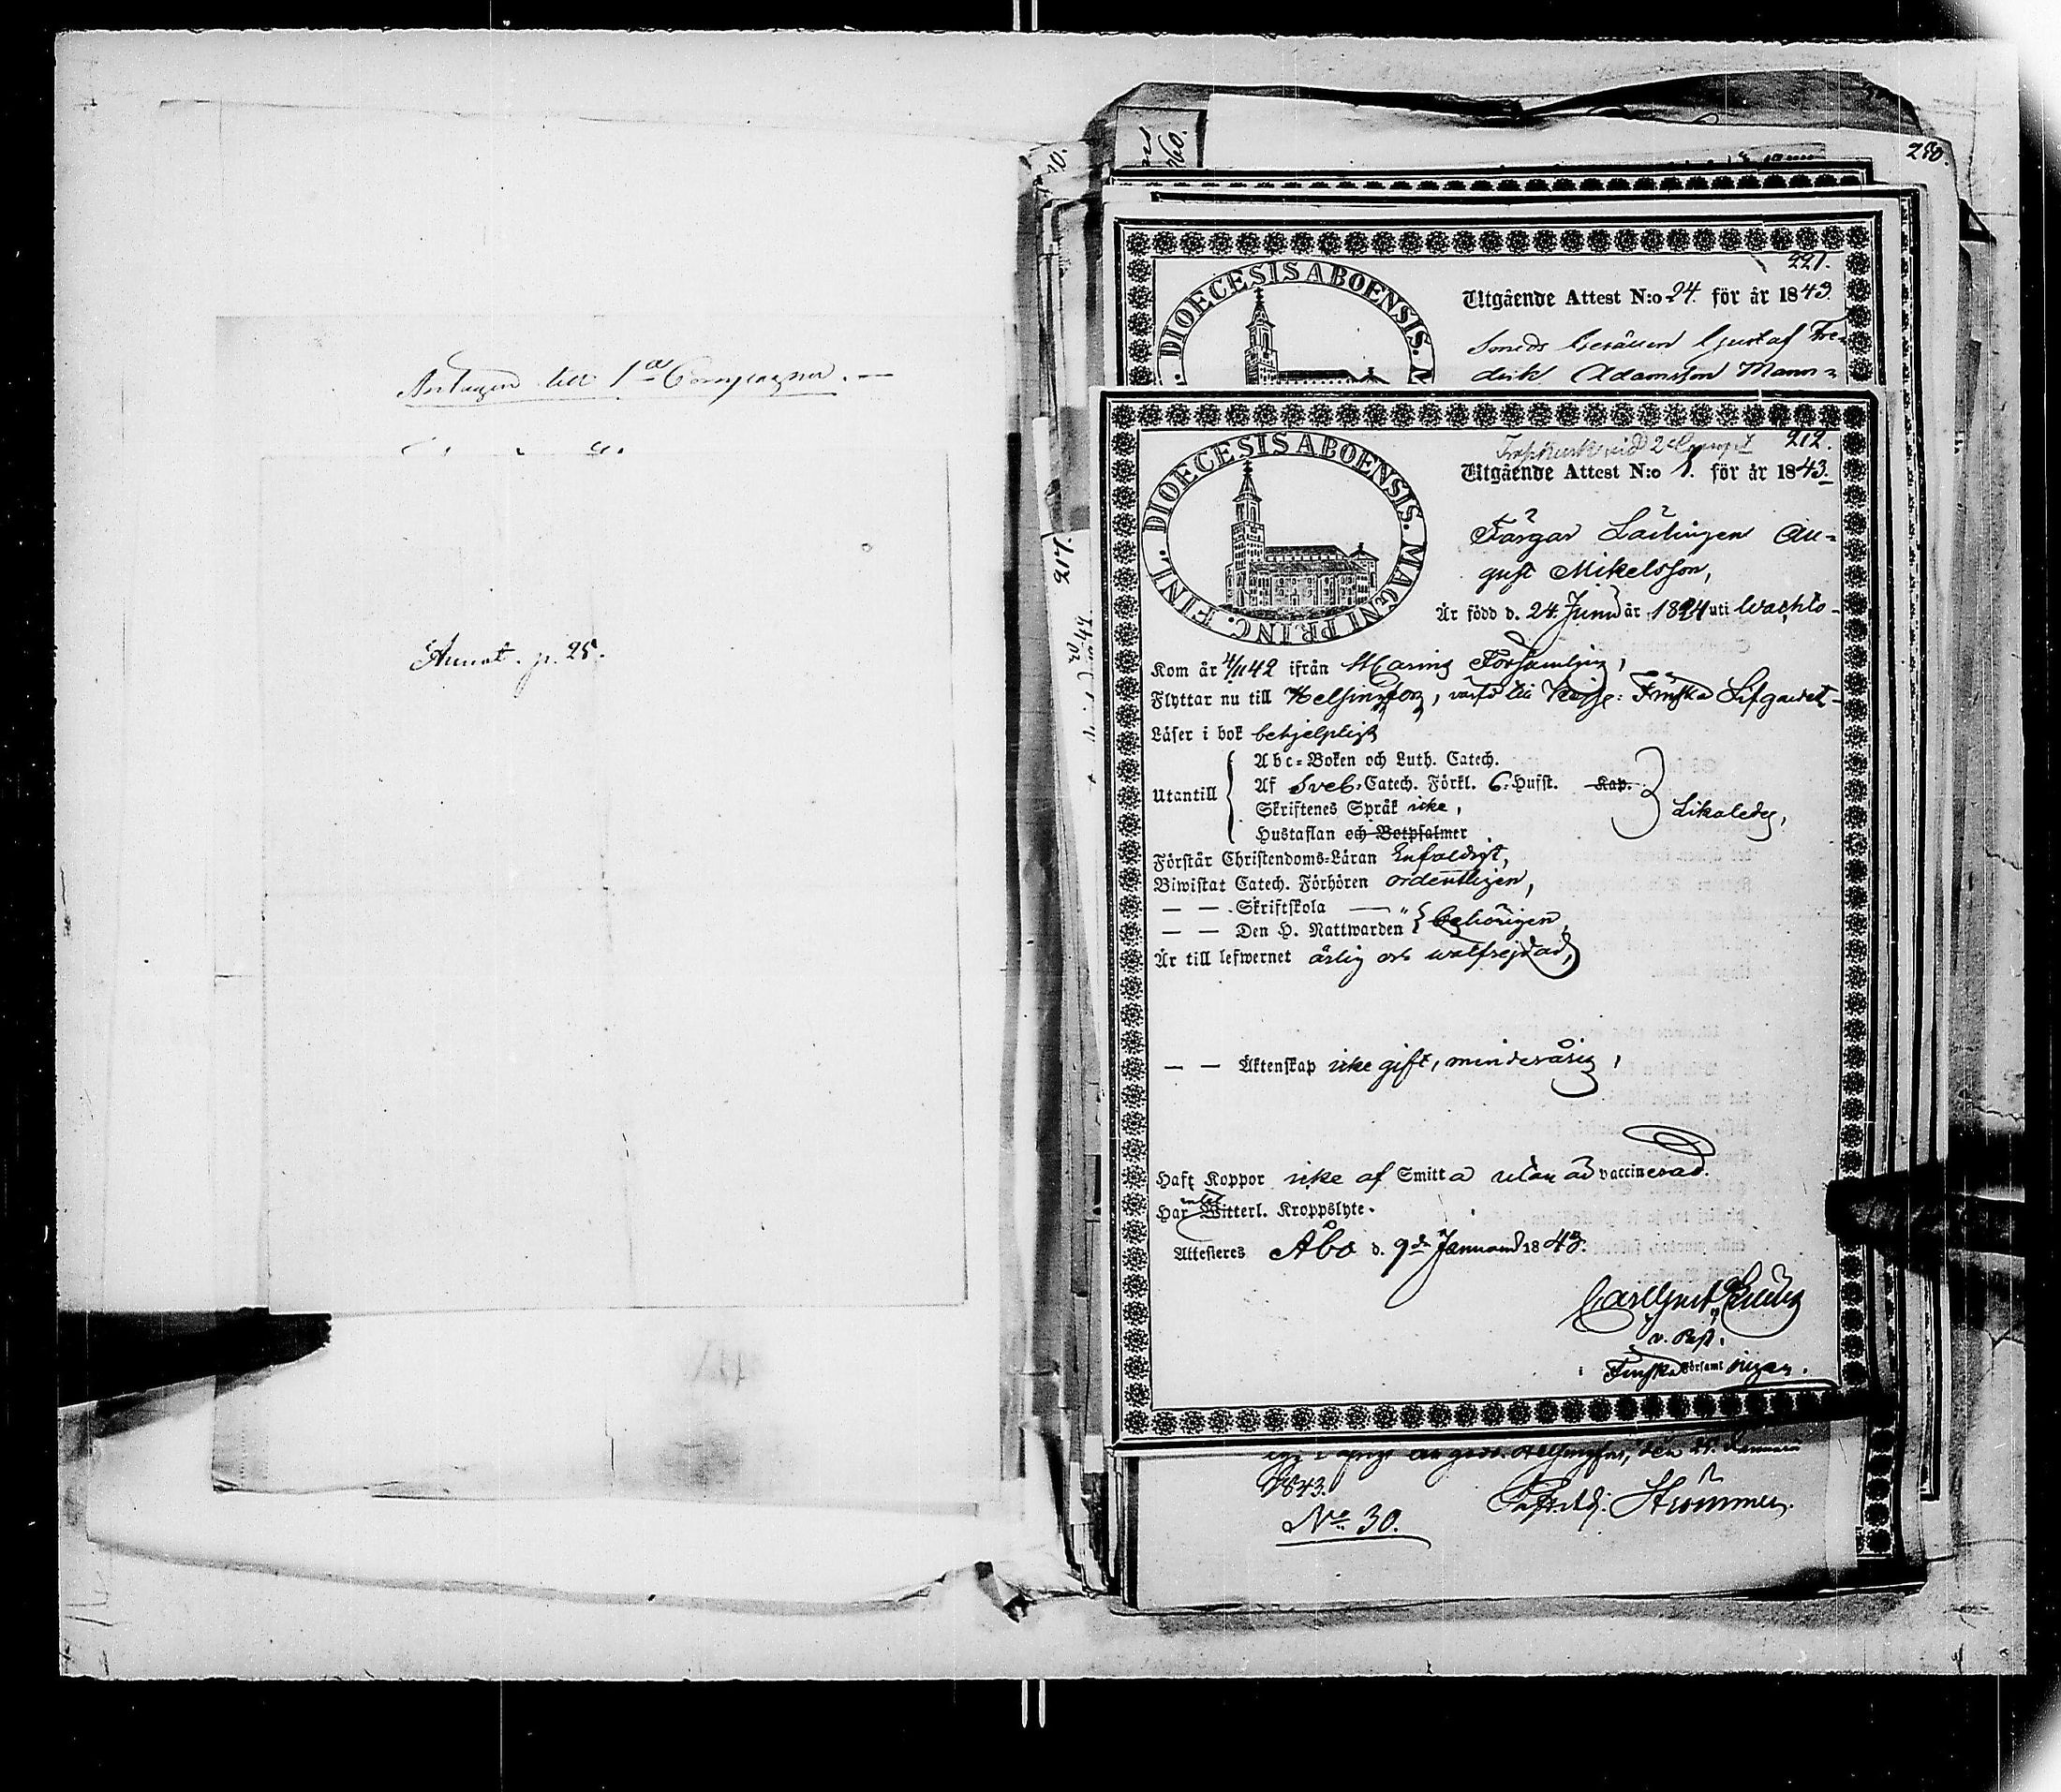 Antagen till 1a Compagnie. —
Annot. p. 25.
260.
280.
221.
DIOECESIS ABOENSIS.
Utgående Attest N:o 24. för år 1843.
Smeds Gesällen Gustaf Fre-
drik Adamsson Mann-
217.
212.
vid 2 Comp.
DIOECESIS ABOENSIS. MAGNI PRINC. FINL.
Utgående Attest N:o 1. för år 1843.
Färgar Lärlingen Au-
gust Mikelsson,
Är född d. 24 Junii år 1824 uti
Kom år 4/11 42 ifrån Församling,
Flyttar nu till Helsingfors, Finska Lifgardet-
Läser i bok behjelpligt
Utantill
Abc-Boken och Luth. Catech.
Af Sveb. Catech. Förkl. 6. Hufst. Kap.
Skriftenes Språk icke,
Hustaflan och Botpsalmer
Likaledes,
Förstår Christendoms-Läran Enfaldigt,
Biwistat Catech. Förhören ordentligen,
— — Skriftskola — „
— — Den H. Nattwarden behörigen,
Är till lefwernet ärlig och wälfrejdad,
— — Äktenskap icke gift, minderårig,
Haft Koppor icke af Smitta utan är vaccinerad.
intet
Har Witterl. Kroppslyte.
Attesteras Åbo d. 9de Januarii 1843.
v. Past.
i Finska Församlingen.
Helsingfors, den 25. Januarii
1843.
No 30.
Strömmer.